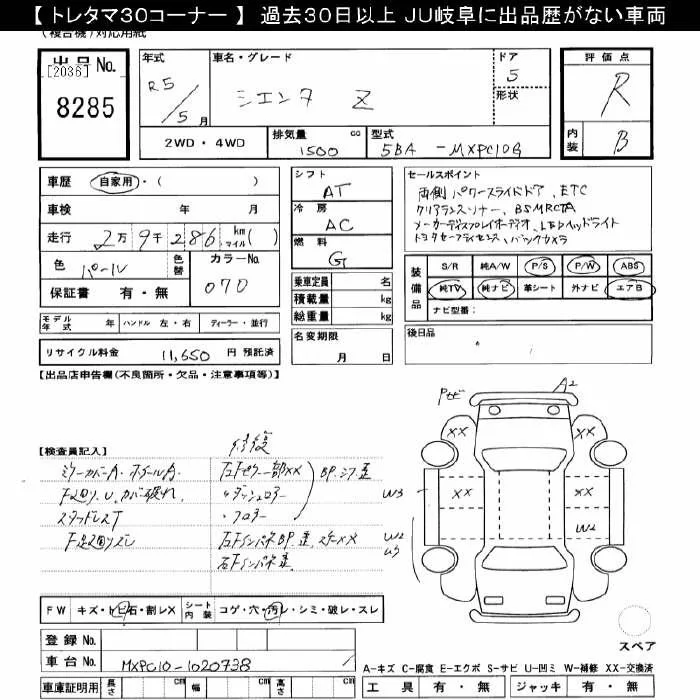 【 トレタマ30コーナー 】 過去30日以上 JU岐阜に出品歴がない車両
(複合機)対応用紙
出品No.
[2036]
8285
年式
R5
5月
車名・グレード
シエンタ Z
ドア
5
形状
評価点
R
内装
B
2WD・4WD
排気量
1500
cc
型式
5BA-MXPC10G
車歴
自家用・( )
車検 年 月
走行 2万9千286 km マイル( )
色 パール
色替
カラーNo. 070
保証書 有・無
シフト AT
冷房 AC
燃料 G
乗車定員 名
積載量 kg
総重量 kg
セールスポイント
両側パワースライドドア、ETC
クリアランスソナー、BSM RCTA
メーカーディスプレイオーディオ、LEDヘッドライト
トヨタセーフティセンス、バックカメラ
装備品
S/R 純A/W P/S P/W ABS
純TV 純ナビ 革シート 外ナビ エアB
ナビ型番：
モデル年式 年 ハンドル 左・右 ディーラー・並行
名変期限
月 日
後日品
リサイクル料金 11,650 円 預託済
【出品店申告欄(不良箇所・欠品・注意事項等)】
A2
XX XX
W3 XX XX
W2 W2
【検査員記入】
修復
ミラーカバーA・ホイールA
スタッドレスT
FW キズ・トビ石・割レX シート内装 コゲ・穴・汚レ・シミ・破レ・スレ
登録No.
車台No. MXPC10-1020738
スペア
A-キズ C-腐食 E-エクボ S-サビ U-凹ミ W-補修 XX-交換済
車庫証明用 長さ cm 幅 cm 高さ cm
工具 有・無 ジャッキ 有・無